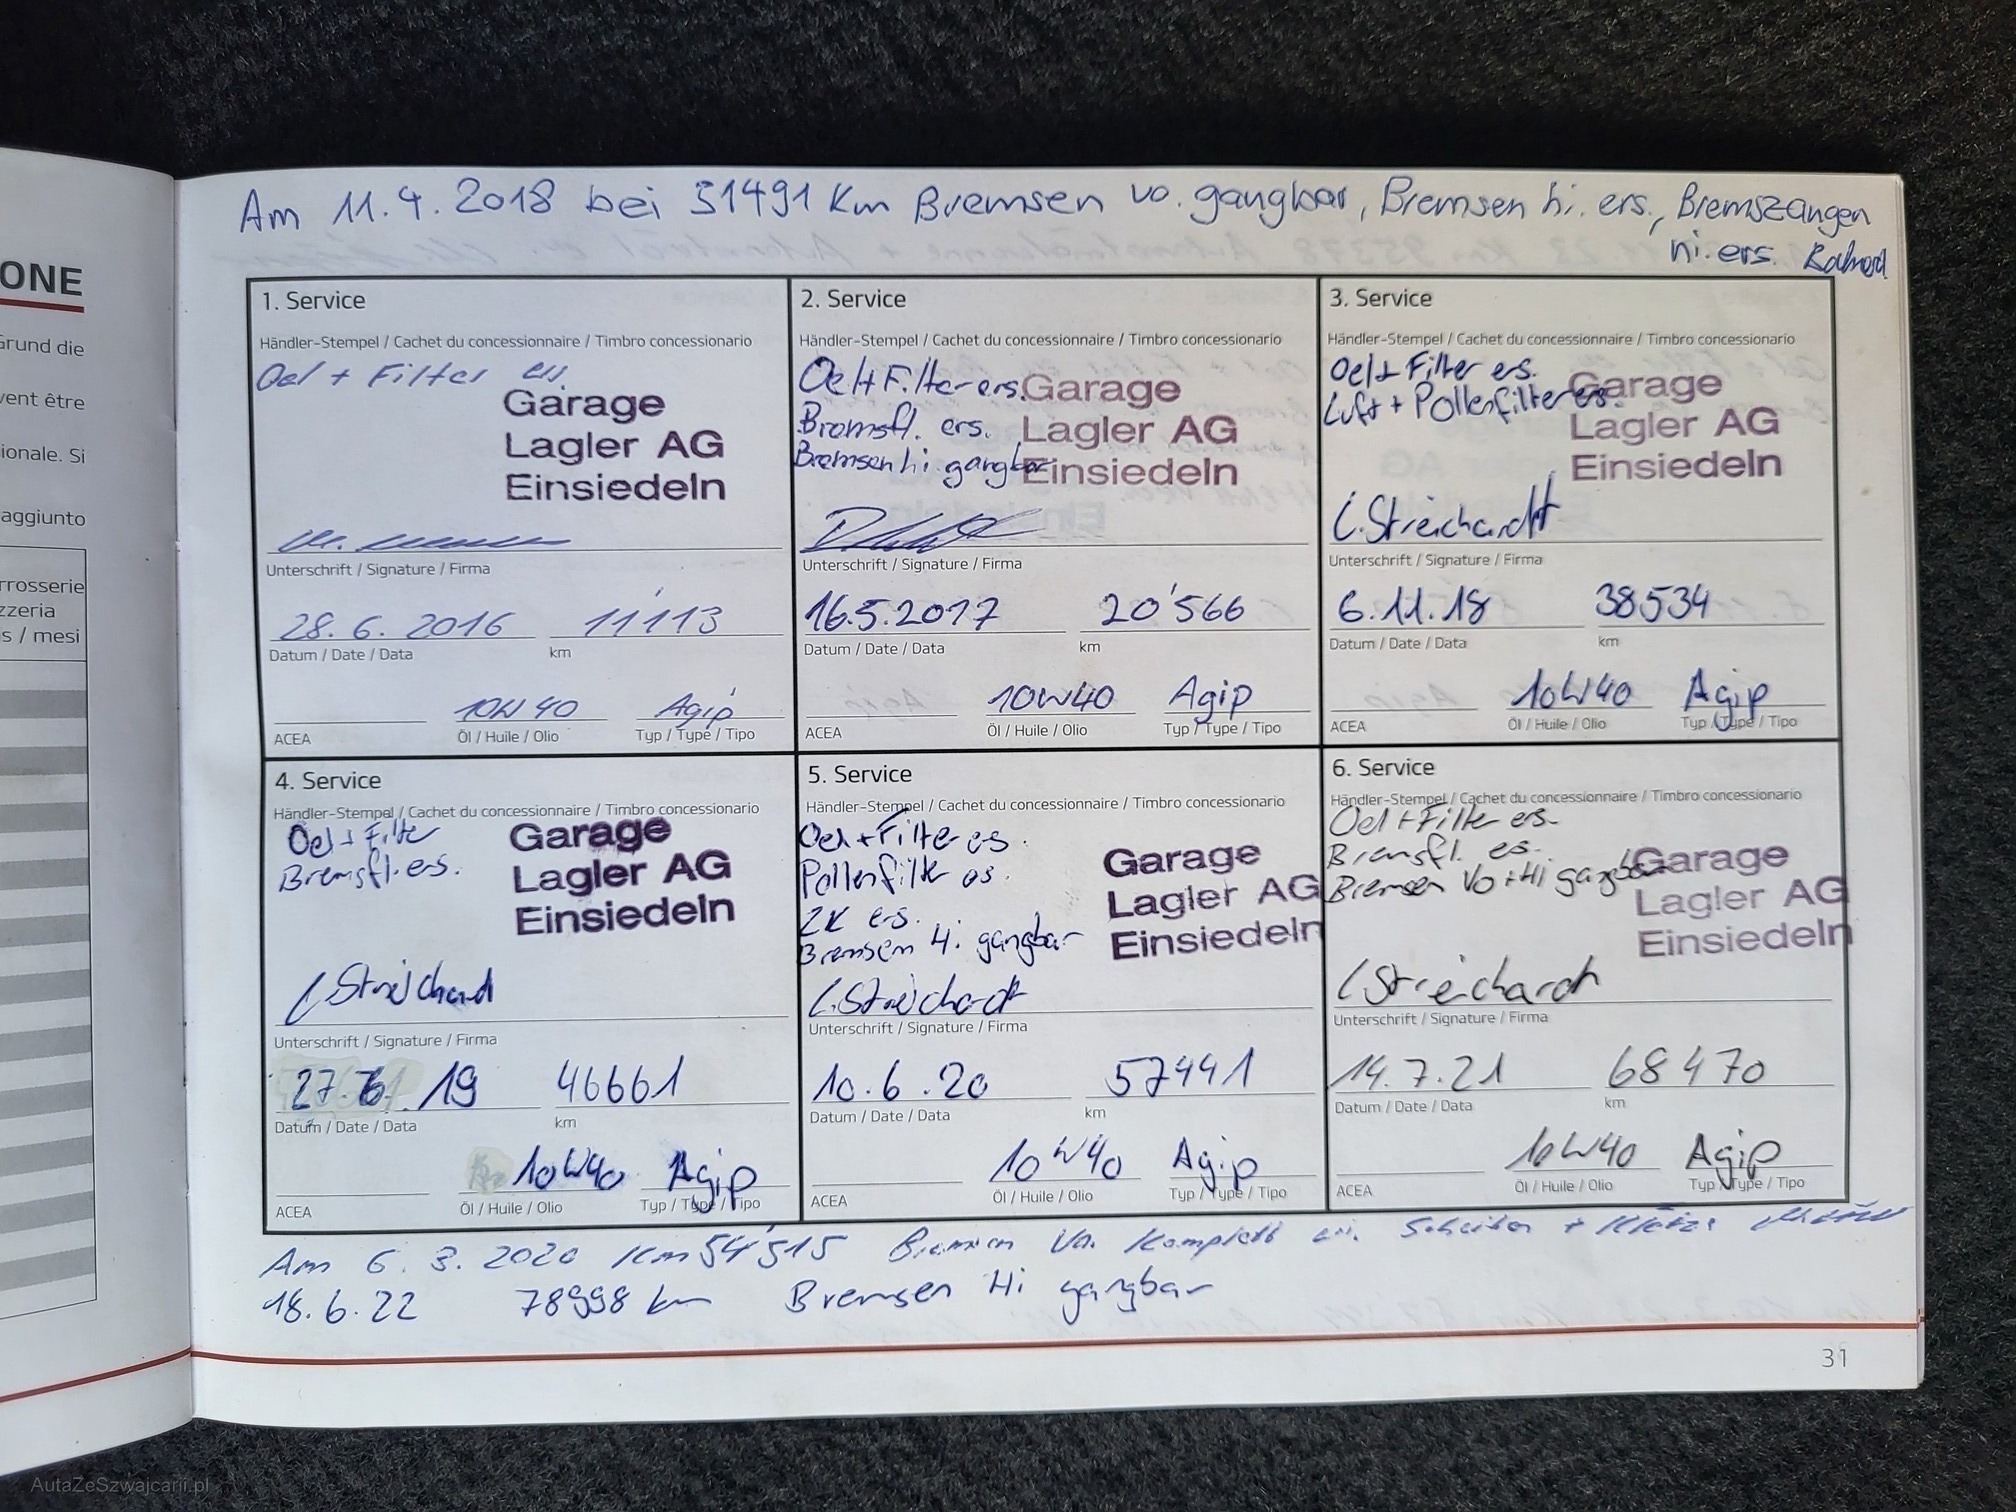 ONE
Grund die
vent être
ionale. Si
aggiunto
rrosserie
zzeria
s / mesi
Am 11.4.2018 bei 31491 Km Bremsen vo. gangbar, Bremsen hi. ers., Bremszangen
hi. ers.
1. Service
Händler-Stempel / Cachet du concessionnaire / Timbro concessionario
Oel + Filter ers.
Garage
Lagler AG
Einsiedeln
Unterschrift / Signature / Firma
28. 6. 2016 11'113
Datum / Date / Data km
10W40 Agip
ACEA Öl / Huile / Olio Typ / Type / Tipo
2. Service
Händler-Stempel / Cachet du concessionnaire / Timbro concessionario
Oel+Filter ers.
Bremsfl. ers.
Bremsen hi gangbar
Garage
Lagler AG
Einsiedeln
Unterschrift / Signature / Firma
16.5.2017 20'566
Datum / Date / Data km
10W40 Agip
ACEA Öl / Huile / Olio Typ / Type / Tipo
3. Service
Händler-Stempel / Cachet du concessionnaire / Timbro concessionario
Oel+Filter ers.
Luft + Pollenfilter ers.
Garage
Lagler AG
Einsiedeln
C.Streichardt
Unterschrift / Signature / Firma
6.11.18 38534
Datum / Date / Data km
10W40 Agip
ACEA Öl / Huile / Olio Typ / Type / Tipo
4. Service
Händler-Stempel / Cachet du concessionnaire / Timbro concessionario
Oel + Filter
Bremsfl. ers.
Garage
Lagler AG
Einsiedeln
C Streichardt
Unterschrift / Signature / Firma
27. 6. 19 46661
Datum / Date / Data km
10W40 Agip
ACEA Öl / Huile / Olio Typ / Type / Tipo
5. Service
Händler-Stempel / Cachet du concessionnaire / Timbro concessionario
Oel+Filter ers.
Pollenfilter ers.
ZK ers.
Bremsen Hi gangbar
Garage
Lagler AG
Einsiedeln
C.Streichardt
Unterschrift / Signature / Firma
10.6.20 57441
Datum / Date / Data km
10W40 Agip
ACEA Öl / Huile / Olio Typ / Type / Tipo
6. Service
Händler-Stempel / Cachet du concessionnaire / Timbro concessionario
Oel+Filter ers.
Bremsfl. ers.
Bremsen Vo+Hi gangbar
Garage
Lagler AG
Einsiedeln
C Streichardt
Unterschrift / Signature / Firma
14.7.21 68470
Datum / Date / Data km
10W40 Agip
ACEA Öl / Huile / Olio Typ / Type / Tipo
Am 6. 3. 2020 Km 54'515 Bremsen Vo. Komplett ers. Scheiben + Klötze
18.6.22 78998 km Bremsen Hi gangbar
31
AutaZeSzwajcarii.pl